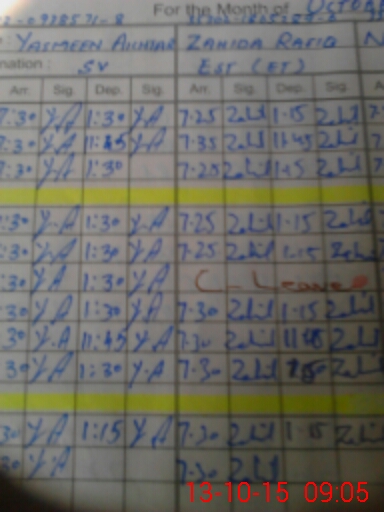 For the Month of OCTOBER
YASMEEN AKHTAR ZAHIDA RAFIQ
nation: SV EST (ET)
Arr. Sig. Dep. Sig. Arr. Sig. Dep. Sig.
7:30 Y.A 1:30 Y.A 7.25 Zahid 1.15 Zahid
7:30 Y.A 11:45 Y.A 7.35 Zahid 11.45 Zahid
7:30 Y.A 1:30 7.25 Zahid 1.15 Zahid
:30 Y.A 1:30 Y.A 7.25 Zahid 1.15 Zahid
:30 Y.A 1:30 Y.A 7.25 Zahid 1.15 Zahid
:30 Y.A 1:30 Y.A C-Leave
:30 Y.A 1:30 Y.A 7.30 Zahid 1.15 Zahid
:30 Y.A 11:45 Y.A 7.30 Zahid Zahid
30 Y.A 1:30 Y.A 7.30 Zahid Zahid
30 Y.A 1:15 Y.A 7.30 Zahid 1.15 Zahid
30 Y.A 7.30 Zahid
13-10-15 09:05